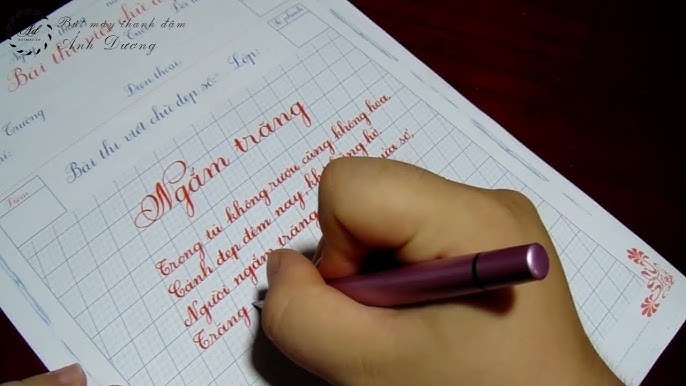 Ad
Bút máy thanh đậm
Ánh Dương
Bài thi viết chữ
Số phách
Trường
Điện thoại:
Lớp:
Bài thi viết chữ đẹp số:
Điểm
Ngắm trăng
Trong tù không rượu cũng không hoa,
Cảnh đẹp đêm nay, hờ.
Người ngắm trăng sổ,
Trăng